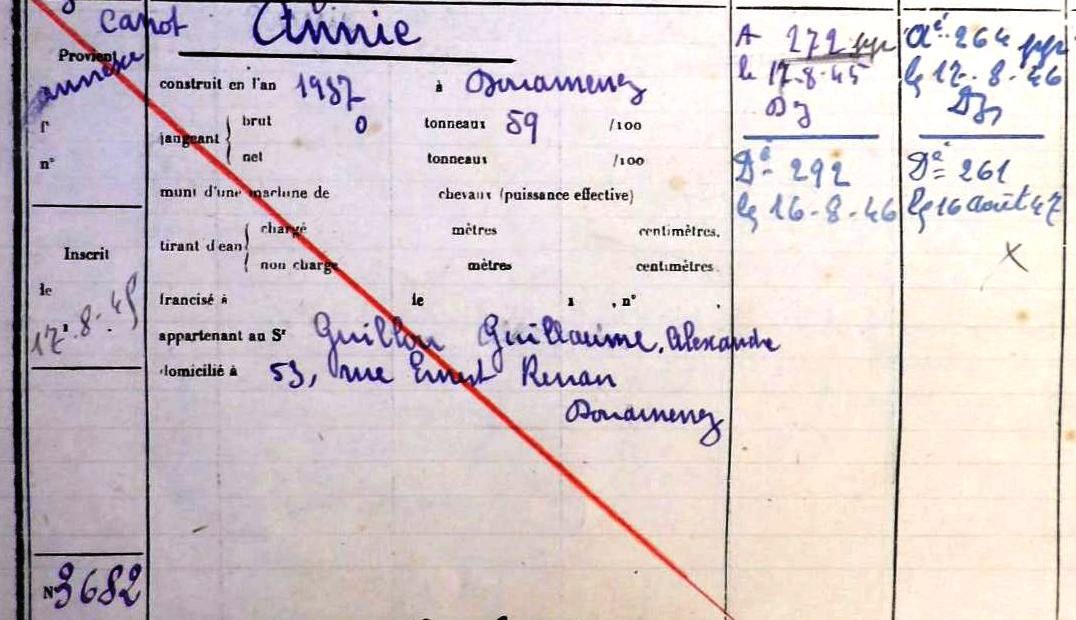 Canot Annie
Provient
annexe
f°
n°
construit en l'an 1937 à Douarnenez
jaugeant { brut 0 tonneaux 59 /100
net tonneaux /100
muni d'une machine de chevaux (puissance effective)
tirant d'eau { chargé mètres centimètres.
non chargé mètres centimètres.
francisé à le 1 , n° .
appartenant au Sr Guillou Guillaume, Alexandre
domicilié à 53, rue Ernest Renan
Douarnenez
Inscrit
le
17.8.45
N° 3682
A 272 ppr
le 17-8-45
Dz
Dé 292
le 16-8-46
Aé 264 ppr
le 17-8-46
Dz
Dé 261
le 16 août 47
X